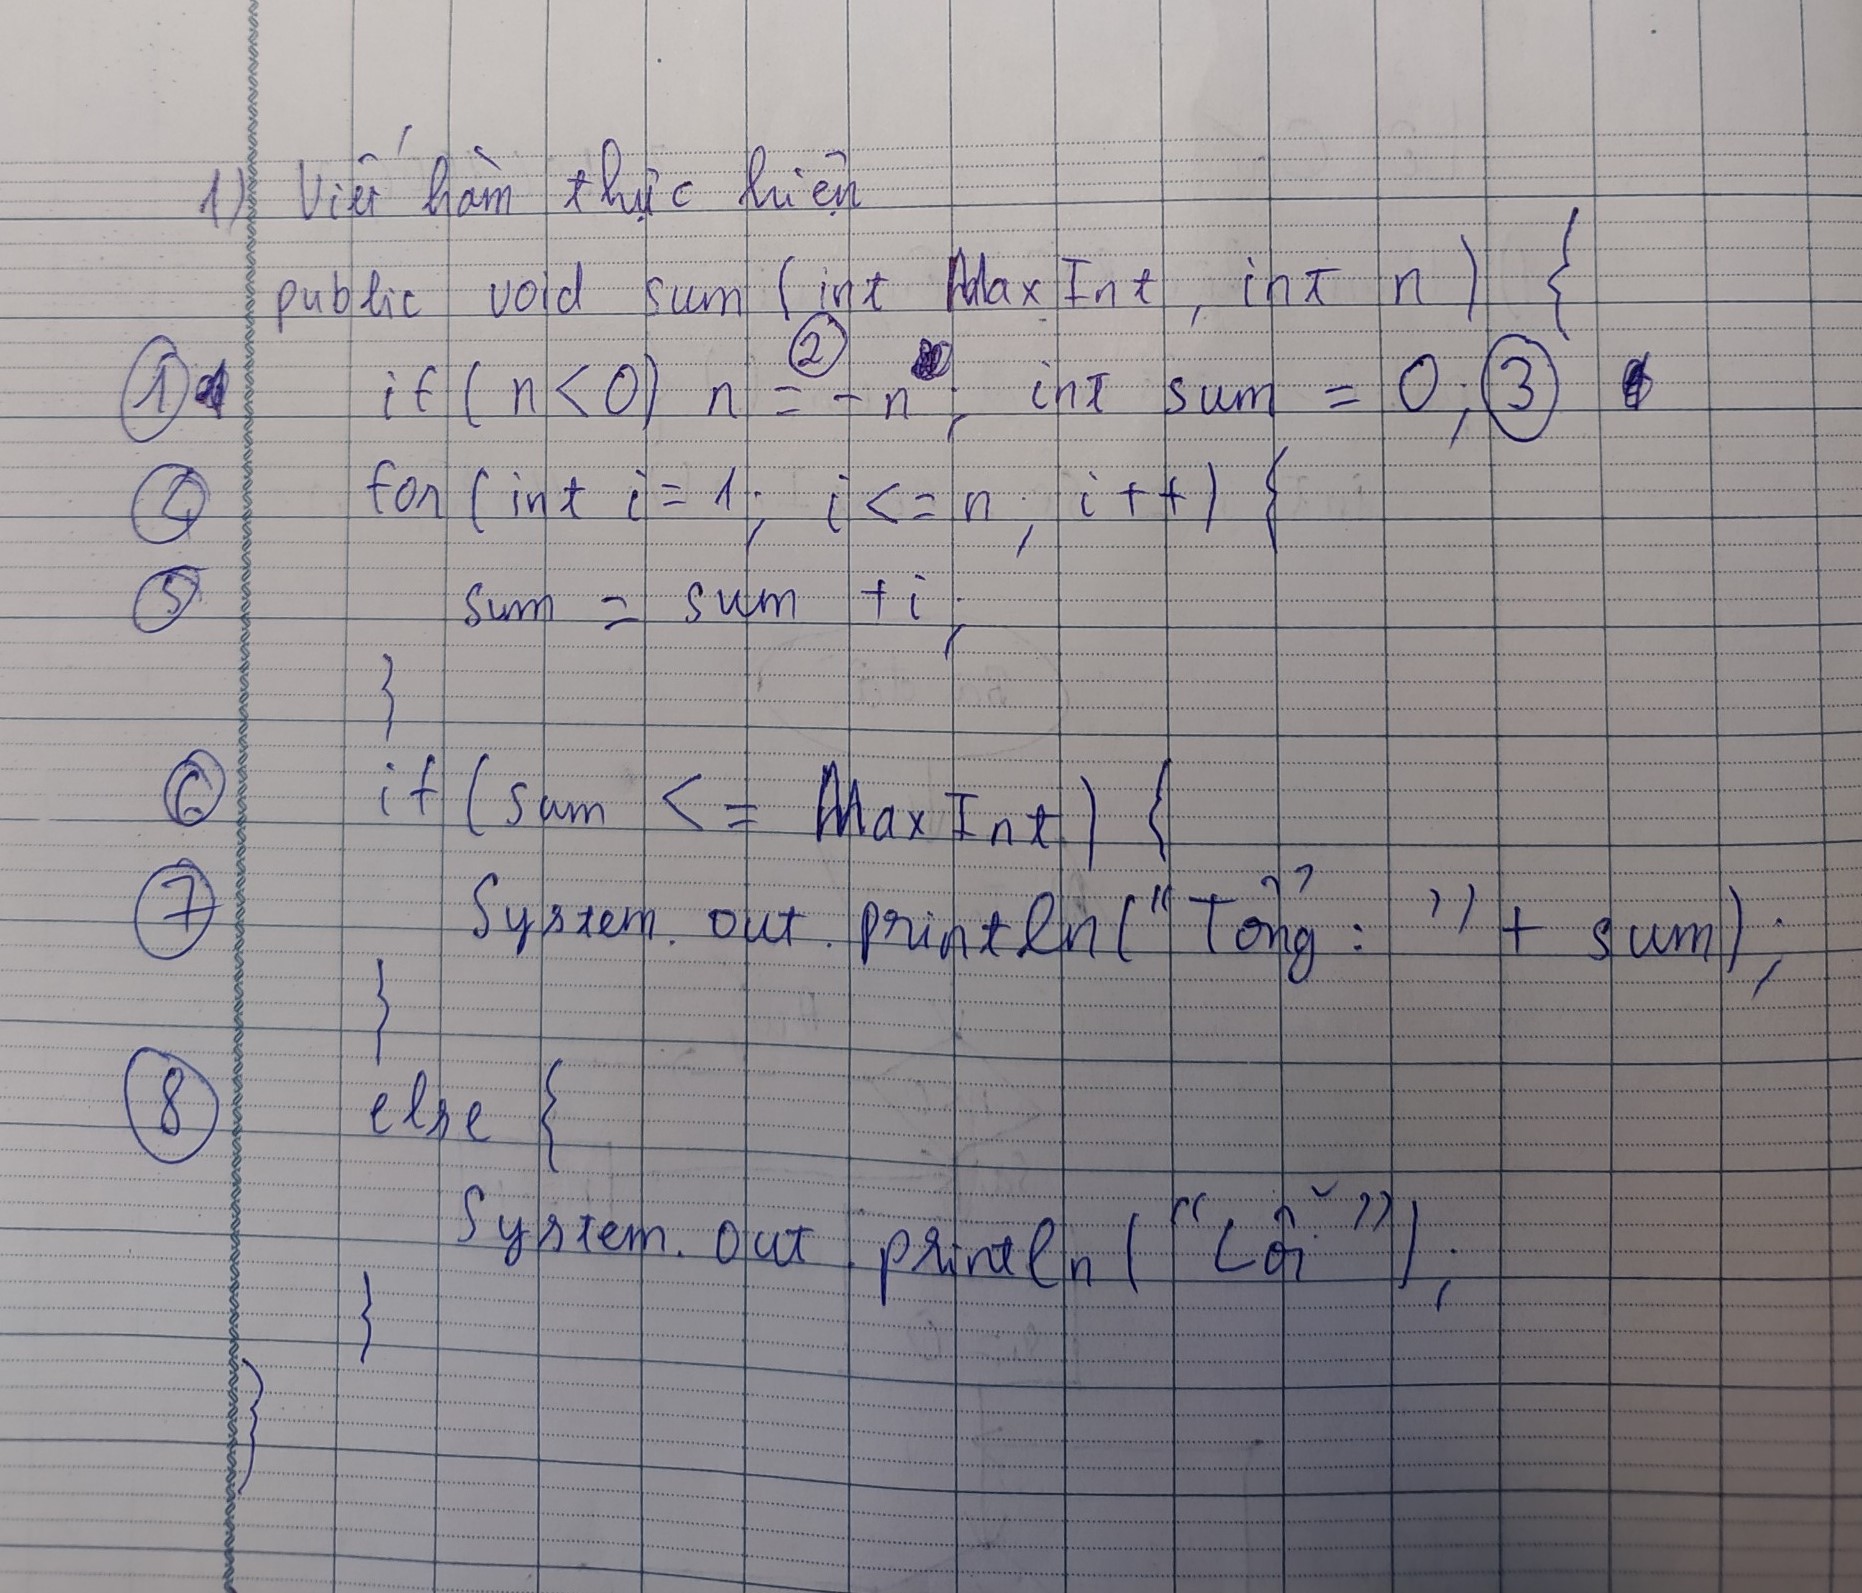 1) Viết hàm thực hiện
public void sum (int MaxInt, int n) {
① if (n<0) n =② -n; int sum = 0; ③
④ for (int i = 1; i <= n; i++) {
⑤ sum = sum +i;
}
⑥ if (sum <= MaxInt) {
⑦ System.out.println("Tổng: " + sum);
}
⑧ else {
System.out.println("Lỗi");
}
}